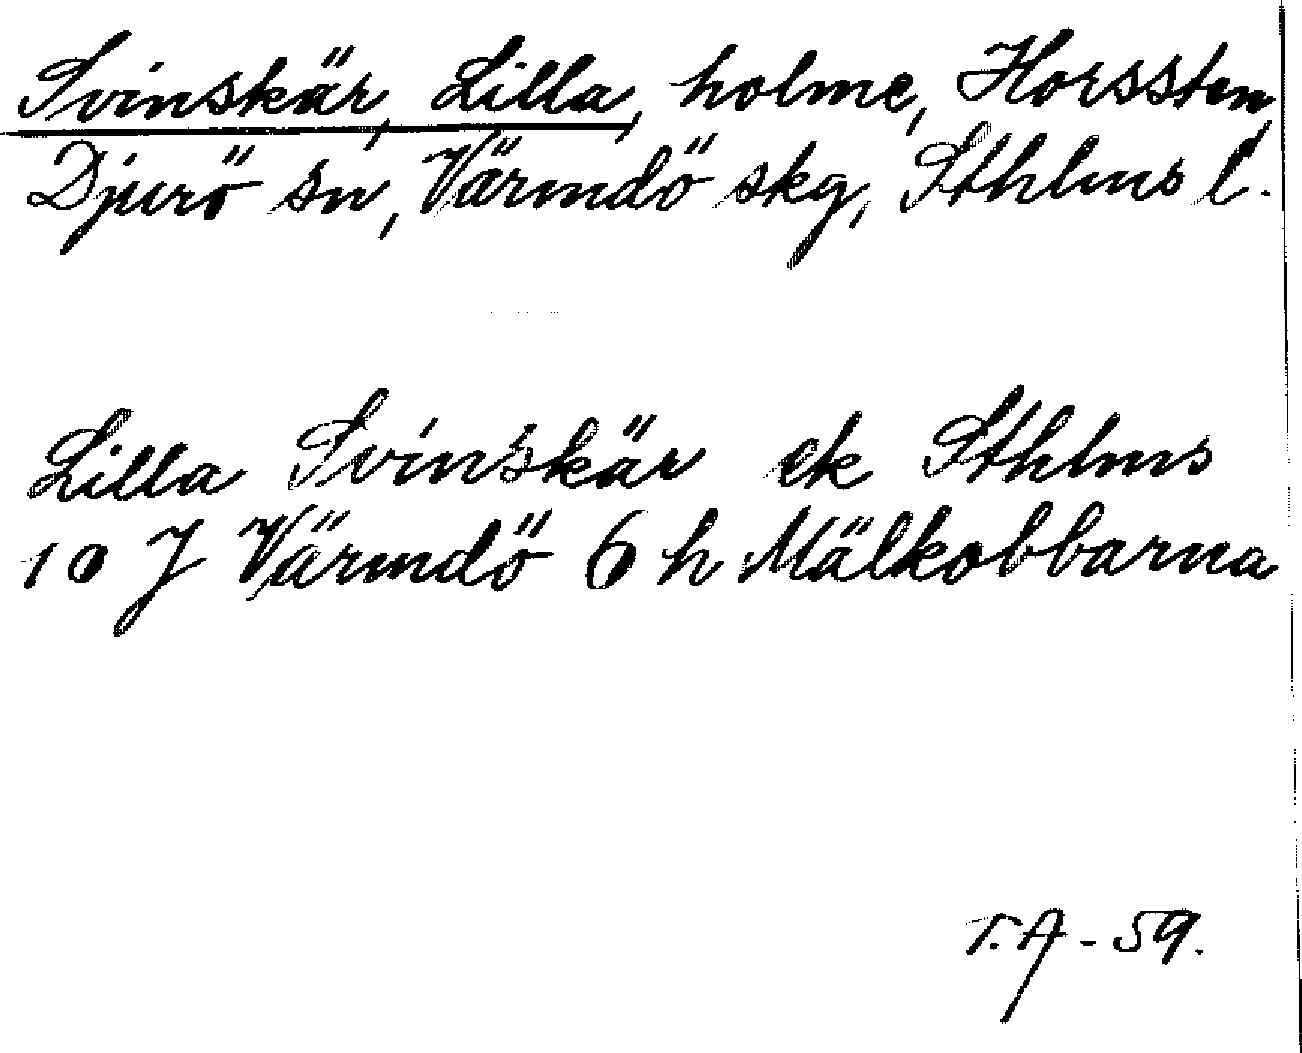 Svinskär, Lilla, holme, Horssten,
Djurö sn, Värmdö skg, Sthlms l.
Lilla Svinskär ek Sthlms
10 J Värmdö 6 h Mälkobbarna
T.A - 59.